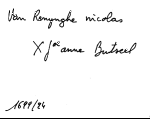 Van Renynghe nicolas
X Joanne Butseel
1699/24